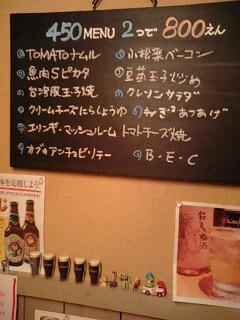 450 MENU 2つで 800えん
TOMATOナムル
魚肉Sピカタ
台湾風玉子焼
クリームチーズにらしょうゆ
エリンギ・マッシュルームトマトチーズ焼
カブのアンチョビソテー
小松菜ベーコン
豆苗玉子炒め
クレソンサラダ
ねぎあつあげ
B・E・C
梅酒